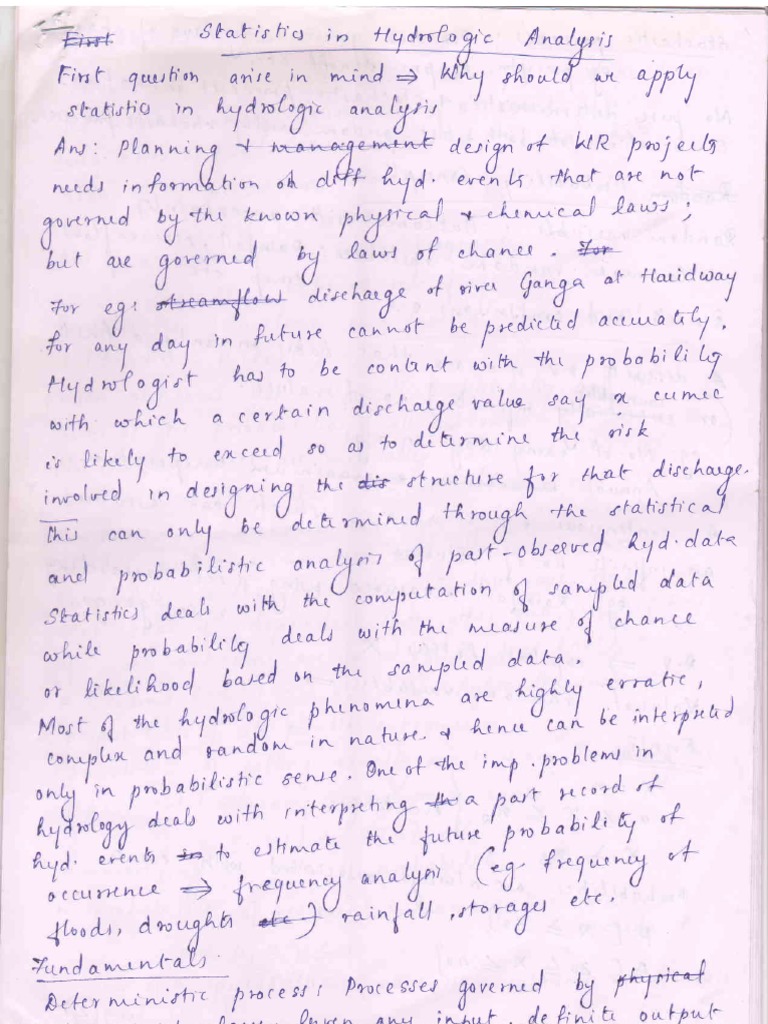 First Statistics in Hydrologic Analysis
First question arise in mind ⇒ Why should we apply
statistics in hydrologic analysis
Ans: Planning & management design of WR projects
needs information on diff hyd. events that are not
governed by the known physical & chemical laws,
but are governed by laws of chance. For
For eg: streamflow discharge of river Ganga at Haridwar
for any day in future cannot be predicted accurately.
Hydrologist has to be content with the probability
with which a certain discharge value say x cumec
is likely to exceed so as to determine the risk
involved in designing the dis structure for that discharge.
This can only be determined through the statistical
and probabilistic analysis of past-observed hyd. data
Statistics deals with the computation of sampled data
while probability deals with the measure of chance
or likelihood based on the sampled data.
Most of the hydrologic phenomena are highly erratic,
complex and random in nature & hence can be interpreted
only in probabilistic sense. One of the imp. problems in
hydrology deals with interpreting th a past record of
hyd. events in to estimate the future probability of
occurrence ⇒ frequency analysis (eg frequency of
floods, droughts etc) rainfall, storages etc.
Fundamentals.
Deterministic process: Processes governed by physical
given any input, definite output